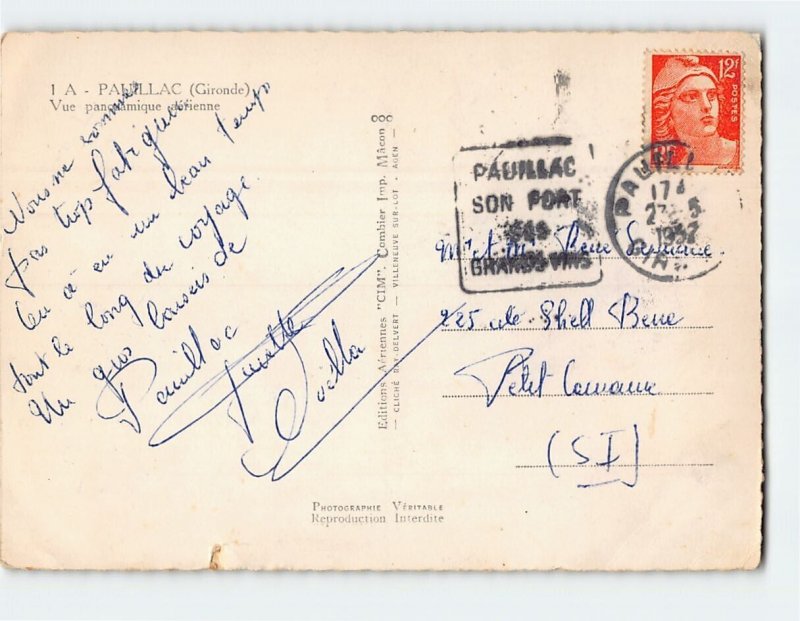 1 A - PAUILLAC (Gironde)
Vue panoramique aérienne
Nous ne sommes
pas trop fatigués
On a eu un beau temps
tout le long du voyage.
Un gros baisers de
Pauillac
Ginette
Editions Aériennes "CIM". Combier Imp. Mâcon
— CLICHÉ RAY-DELVERT - VILLENEUVE-SUR-LOT - AGEN —
PAUILLAC
SON PORT
SES
GRANDS VINS
12F
POSTES
PAUILLAC
1952
Mr et Mme René
225 Shell Berre
Petit Couronne
(S I)
PHOTOGRAPHIE VÉRITABLE
Reproduction Interdite